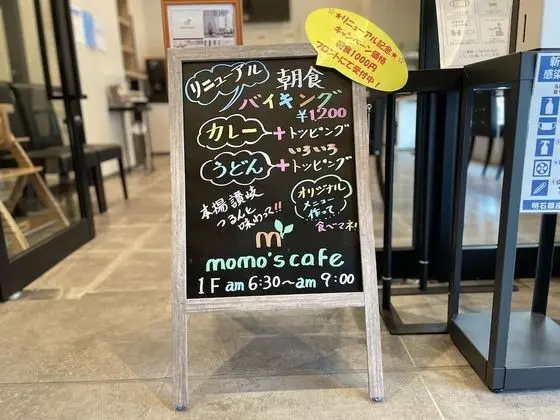 ☆★リニューアル記念★☆
キャンペーン価格
朝食1000円
フロントにて受付中!
リニューアル
朝食
バイキング
¥1,200
カレー+トッピング
いろいろ
うどん+トッピング
本場讃岐
つるんと
味わって!!
オリジナル
メニュー
作って…
食べマネ!
m
momo's cafe
1F am 6:30~am 9:00
新
感染
明石銀座